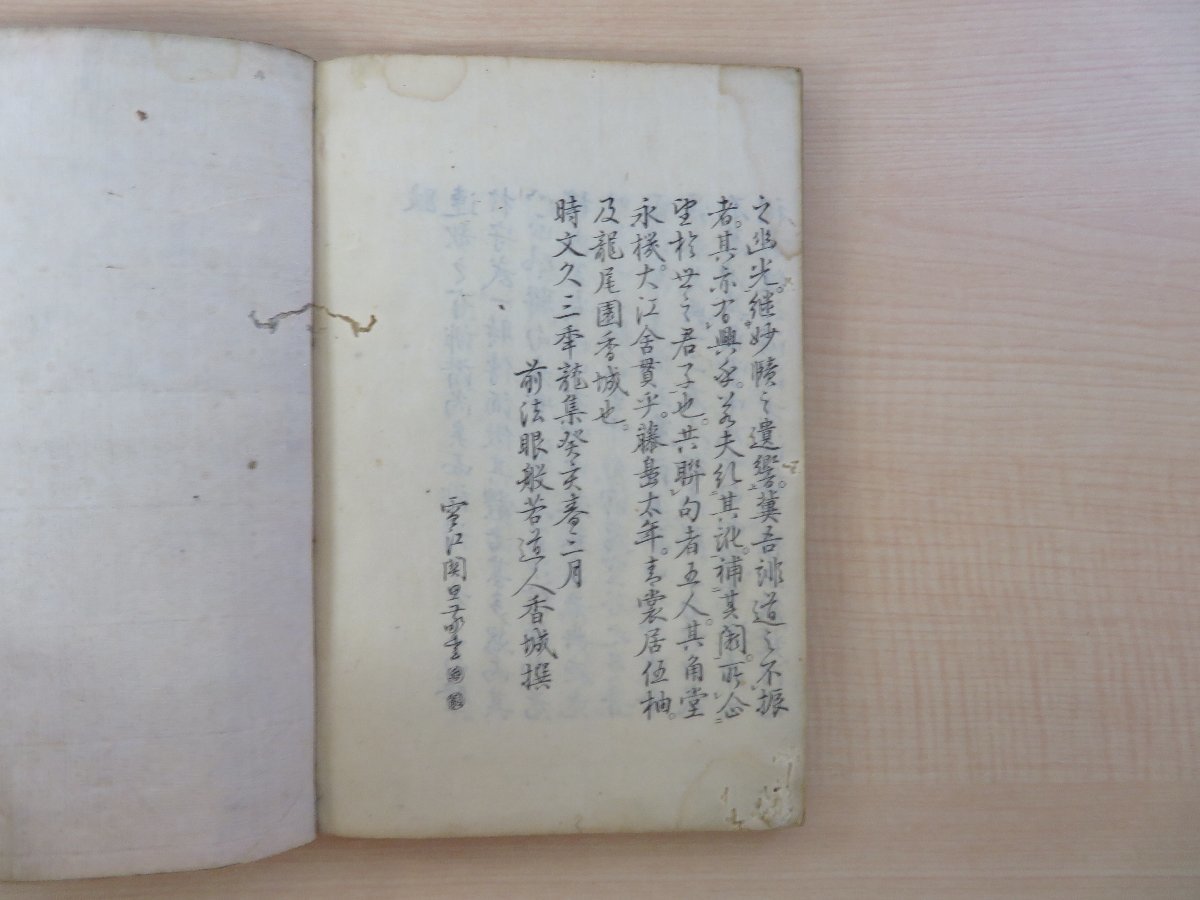 之幽光。継妙賾之遺響。冀吾誹道之不振
者。其亦有興乎。若夫糺其訛。補其闕。所企
望於世之君子也。其聯句者五人。其角堂
永機。大江舎貫乎。藤島太年。青裳居伍柚。
及龍尾園香城也。
時文久三年龍集癸亥春三月
前法眼般若道人香城撰
雪江関思敬書